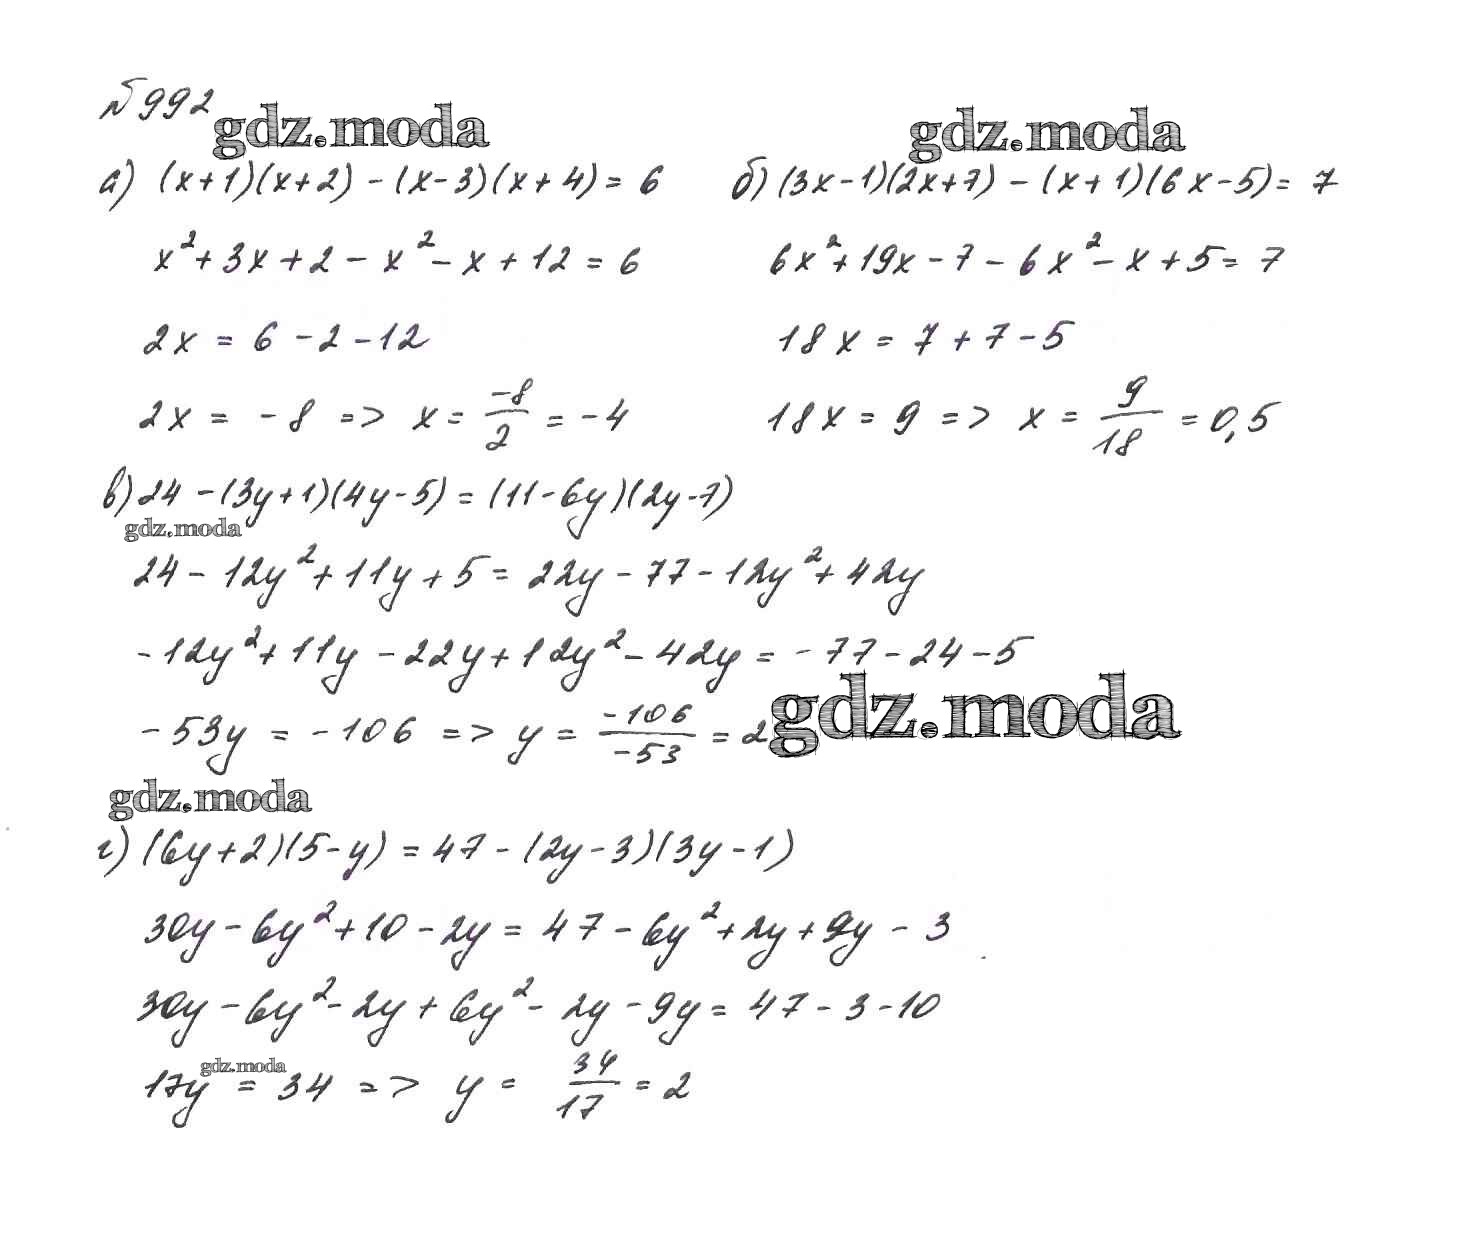 №992
gdz.moda
gdz.moda
а) (x+1)(x+2) - (x-3)(x+4) = 6
x²+3x+2-x²-x+12=6
2x = 6-2-12
2x = -8 => x = -8/2 = -4
б) (3x-1)(2x+7) - (x+1)(6x-5) = 7
6x²+19x-7-6x²-x+5=7
18x = 7+7-5
18x = 9 => x = 9/18 = 0,5
в) 24-(3y+1)(4y-5) = (11-6y)(2y-7)
gdz.moda
24-12y²+11y+5=22y-77-12y²+42y
-12y²+11y-22y+12y²-42y = -77-24-5
-53y = -106 => y = -106/-53 = 2
gdz.moda
gdz.moda
г) (6y+2)(5-y) = 47-(2y-3)(3y-1)
30y-6y²+10-2y = 47-6y²+2y+9y-3
30y-6y²-2y+6y²-2y-9y = 47-3-10
gdz.moda
17y = 34 => y = 34/17 = 2